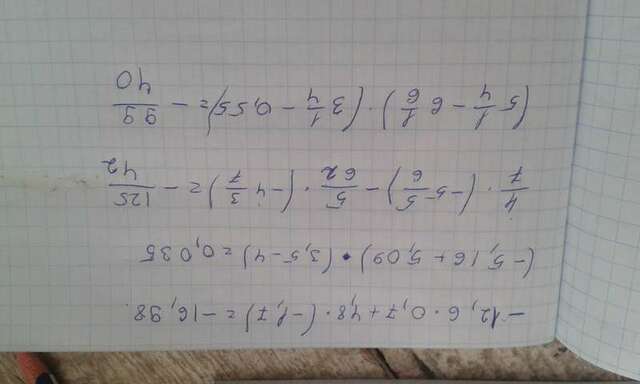 -12,6·0,7+4,8·(-1,7)=-16,98
(-5,16+5,09)·(3,5-4)=0,035
4/7·(-5 5/6)-5/62·(-4 3/7)=-125/42
(5 1/4-6 1/6)·(3 1/4-0,55)=-99/40